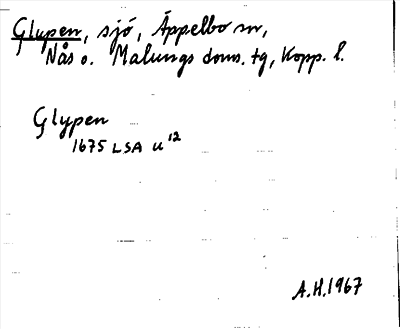 Glypen, sjö, Äppelbo sn,
Nås o. Malungs doms. tg, Kopp. l.
Glypen
1675 LSA U12
A.H. 1967